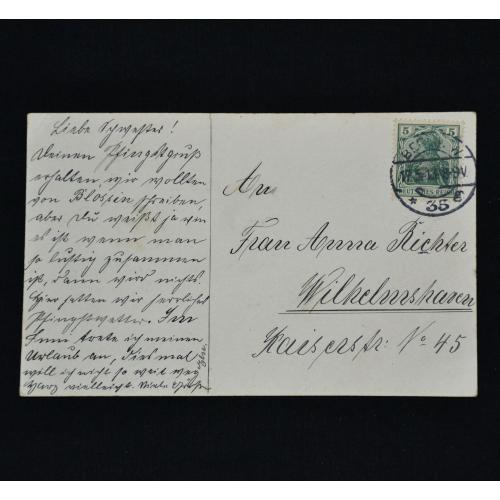 Liebe Schwester!
Deinen Pfingstgruß
erhalten, wir wollten
von Blossin schreiben,
aber Du weißt ja wie
es ist, wenn man
so lustig zusammen
ist, dann wird nichts.
Hier hatten wir herrliches
Pfingstwetter. Im
Juni trete ich meinen
Urlaub an, Diesmal
will ich nicht so weit weg
Harz vielleicht. Viele Grüße
An
Frau Anna Richter
Wilhelmshaven
Kaiserstr. No 45
5 5
* 35 c